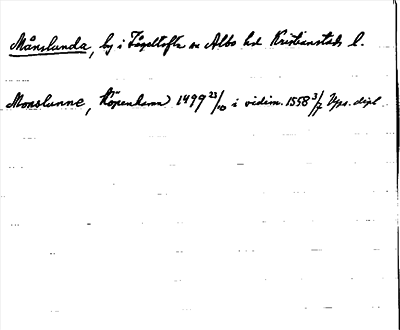 Månslunda, by i Fågeltofta sn Albo hd Kristianstads l.
Monslunne, Köpenhamn 1499 23/10 i vidim. 1558 3/7 Ups. dipl.